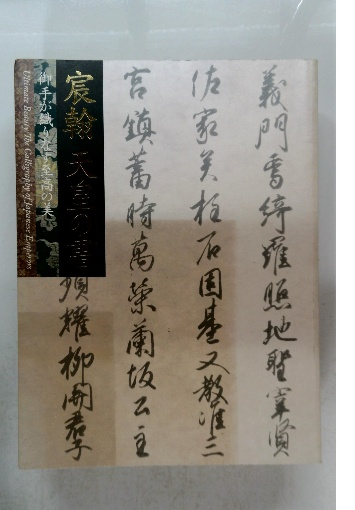 宸翰 天皇の書
御手が織りなす至高の美
Ultimate Beauty: The Calligraphy of Japanese Emperors
義門雪綺羅照地聖宰賢
佐家美柱石固基又教淮三
宮鎮蓄時萬榮蘭坂公主
頌耀柳開君子